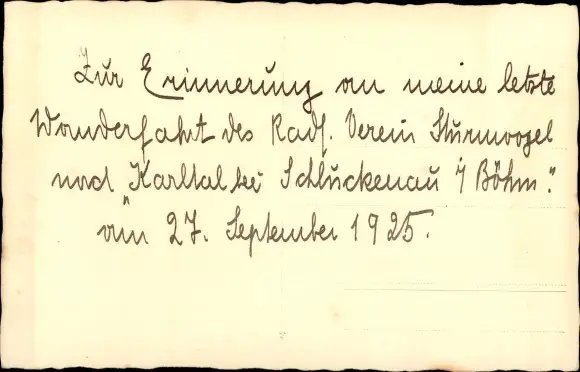 Zur Erinnerung an meine letzte
Wanderfahrt des Radf. Verein Sturmvogel
nach „Karltal bei Schluckenau i/ Böhm."
am 27. September 1925.